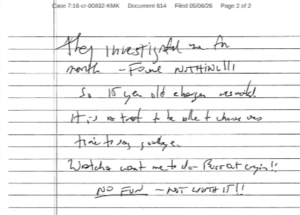 Case 7:16-cr-00832-KMK Document 614 Filed 05/06/26 Page 2 of 2
They investigated me for
month - Found NOTHING!!!
So 15 year old charges
It is to be able to choose
time to say goodbye.
want me to do - Bust out crying!!
NO FUN - NOT WORTH IT!!